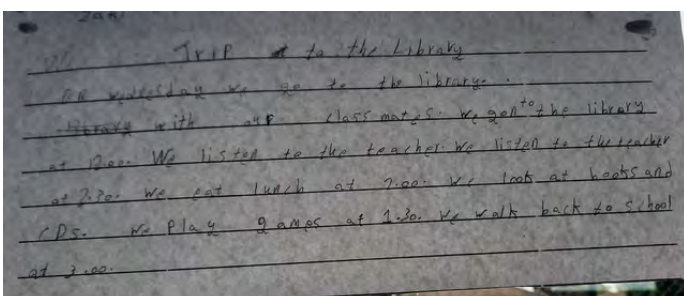 Trip to the Library
On wednesday we go to the library.
with our class mates. We go to the library
at 12.00. We listen to the teacher. We listen to the teacher
at 2.30. We eat lunch at 2.00. We look at books and
CDs. We Play games at 1.30. We walk back to school
at 3.00.